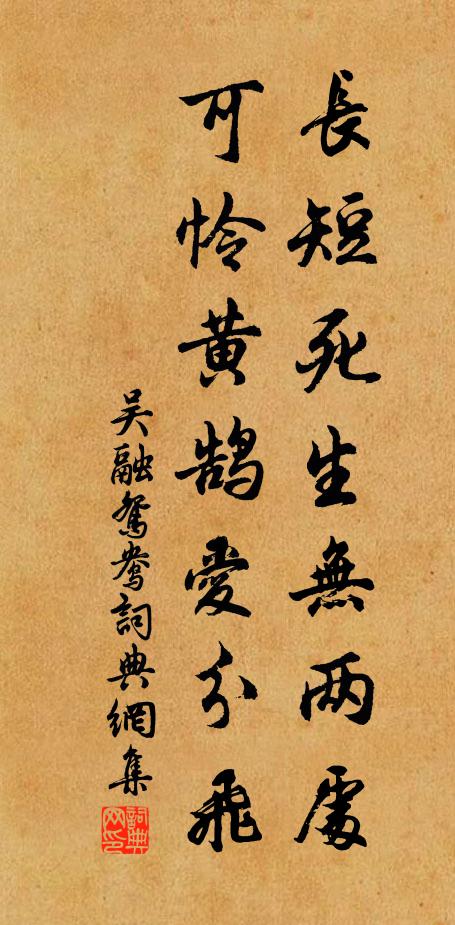 長短死生無两處
可怜黄鹄愛分飛
吴融鴛鴦詞典網集
詞典网印